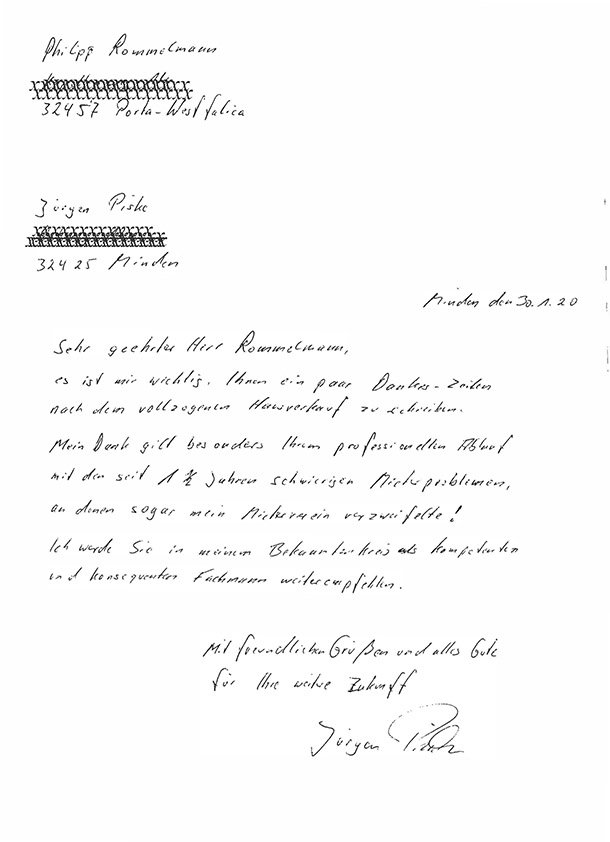 Philipp Rommelmann
32457 Porta-Westfalica
Jürgen Piske
32425 Minden
Minden den 30.1.20
Sehr geehrter Herr Rommelmann,
es ist mir wichtig, Ihnen ein paar Dankes-Zeilen
nach dem vollzogenen Hausverkauf zu schreiben.
Mein Dank gilt besonders Ihrem professionellen Ablauf
mit den seit 1 ½ Jahren schwierigen Mieterproblemen,
an denen sogar mein Mieterverein verzweifelte!
Ich werde Sie in meinem Bekanntenkreis als kompetenten
und konsequenten Fachmann weiterempfehlen.
Mit freundlichen Grüßen und alles Gute
für Ihre weitere Zukunft
Jürgen Piske